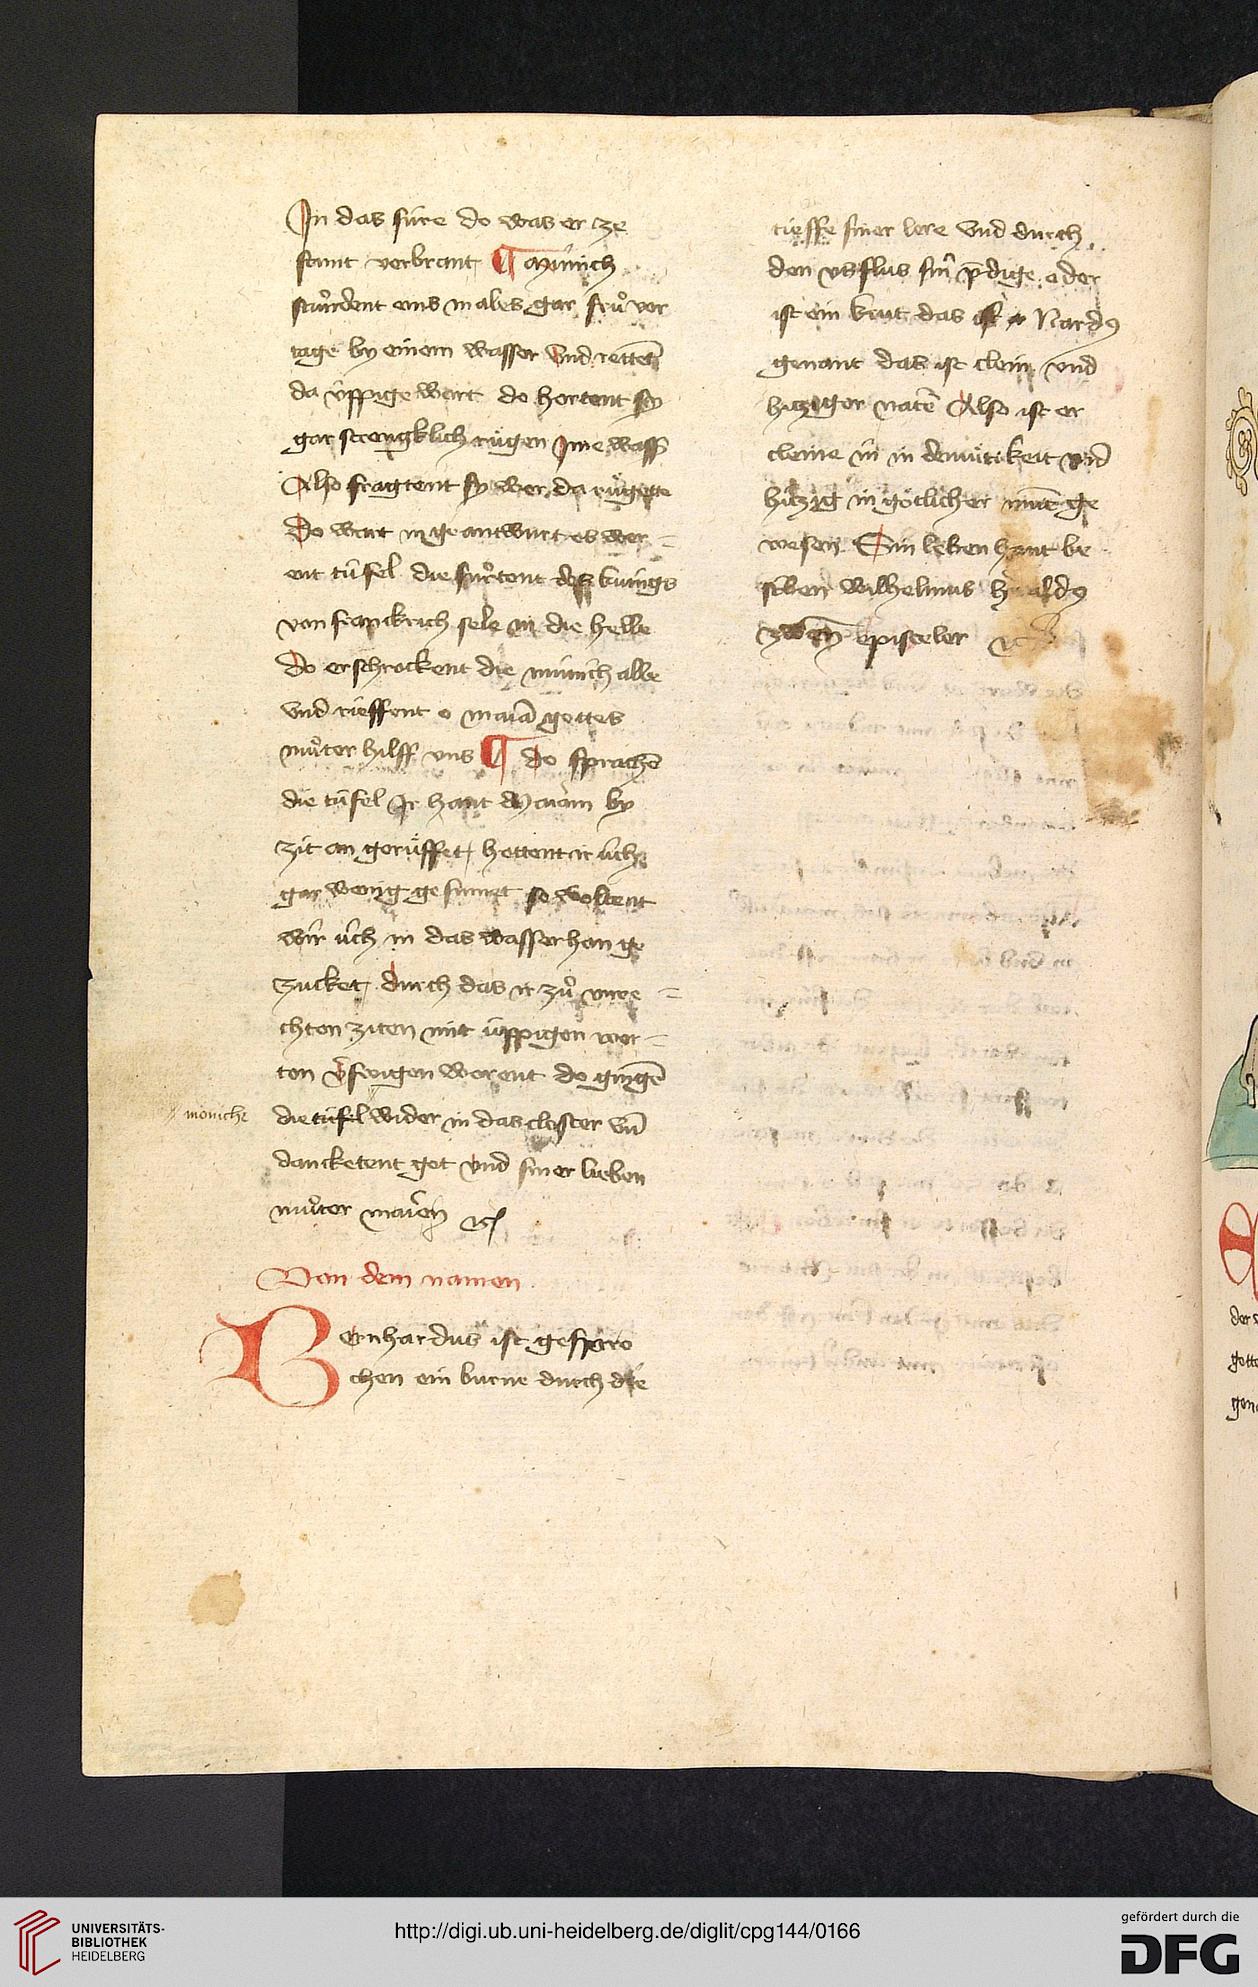 In das füre do was er ze
stunt verbrant ¶ Münich
stůndent eins males gar frů vor
tage by einem wasser vnd rettent̄
da v̈ppige wort do hortent sy
gar strengklich rügen Jme wasſ
Also fragtent sy wer da rügette
Do wart in geantwurt es wer=
ent tüfel die fůrtent des kunigs
von franckrich sele in die helle
do erschrockent die münich alle
vnd rieffent o maiā gottes
můter hilff vns ¶ do sprachē
die tüfel Ir hant Mariam by
zit an gerüffet, hettent ir üch
gar wenig gesumet so woltent
wir üch in das wasser han ge
zucket, durch das ir zů vnre=
chten ziten mit üppigen wor=
ten
die tüfel wider in das closter vn̄
dancketent got vnd siner lieben
můter marien ꝛc
moniche
Von dem namen
Bernhardus ist gespro
chen ein burne durch die
tieffe siner lere vnd durch
den vsflus sin̄ p̄dige oder
ist ein krut das ist Nardꝰ
genant das ist clein vnd
hitziger natē Also ist er
cleine in demütikeit vnd
hitzig in götlicher min̄e ge
wesen Sin leben hant be
sc̄ben wilhelmus
zwen episteler ꝛc
UNIVERSITÄTS-
BIBLIOTHEK
HEIDELBERG
http://digi.ub.uni-heidelberg.de/diglit/cpg144/0166
gefördert durch die
DFG